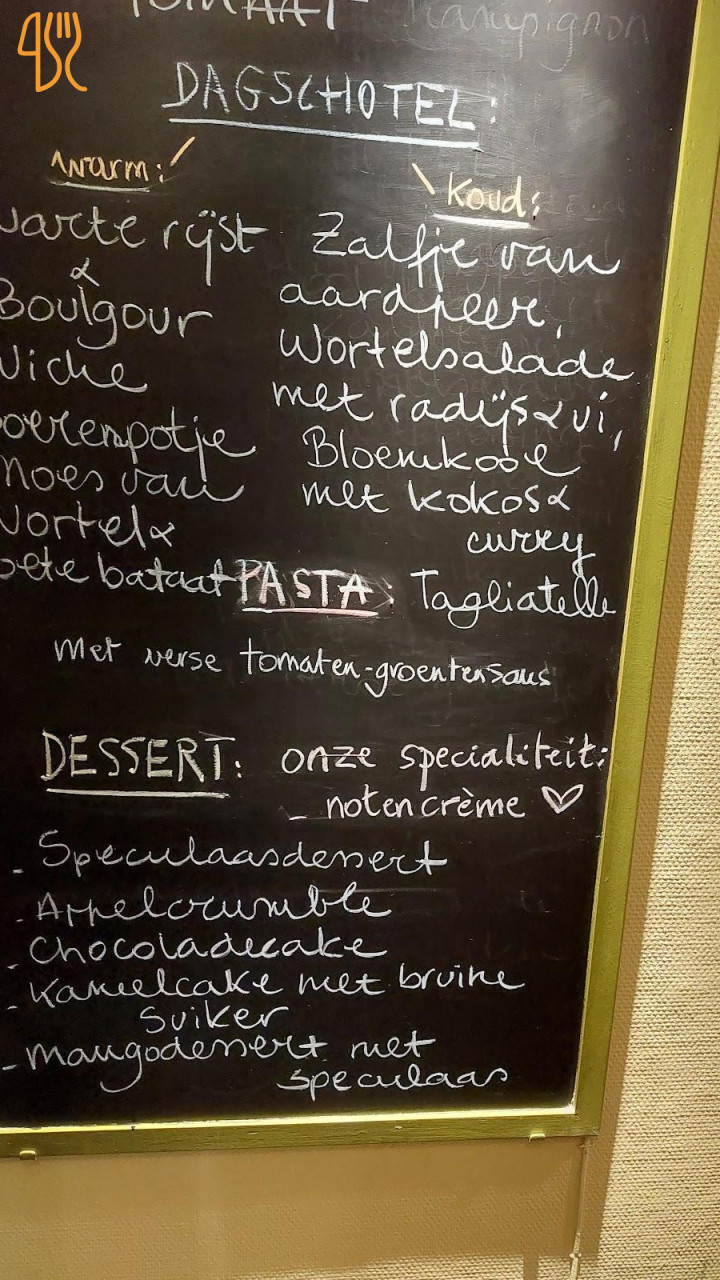 TOMAAT Champignon
DAGSCHOTEL:
warm:
warte rijst
&
Boulgour
Viche
oerenpotje
moes van
wortel &
oete bataat
Koud:
Zalfje van
aardpeer,
Wortelsalade
met radijs & ui,
Bloemkool
met kokos &
curry
PASTA: Tagliatelle
met verse tomaten-groentensaus
DESSERT: onze specialiteit:
- notencrème ♡
- Speculaasdessert
- Appelcrumble
- Chocoladecake
- Kaneelcake met bruine
suiker
- Mangodessert met
speculaas